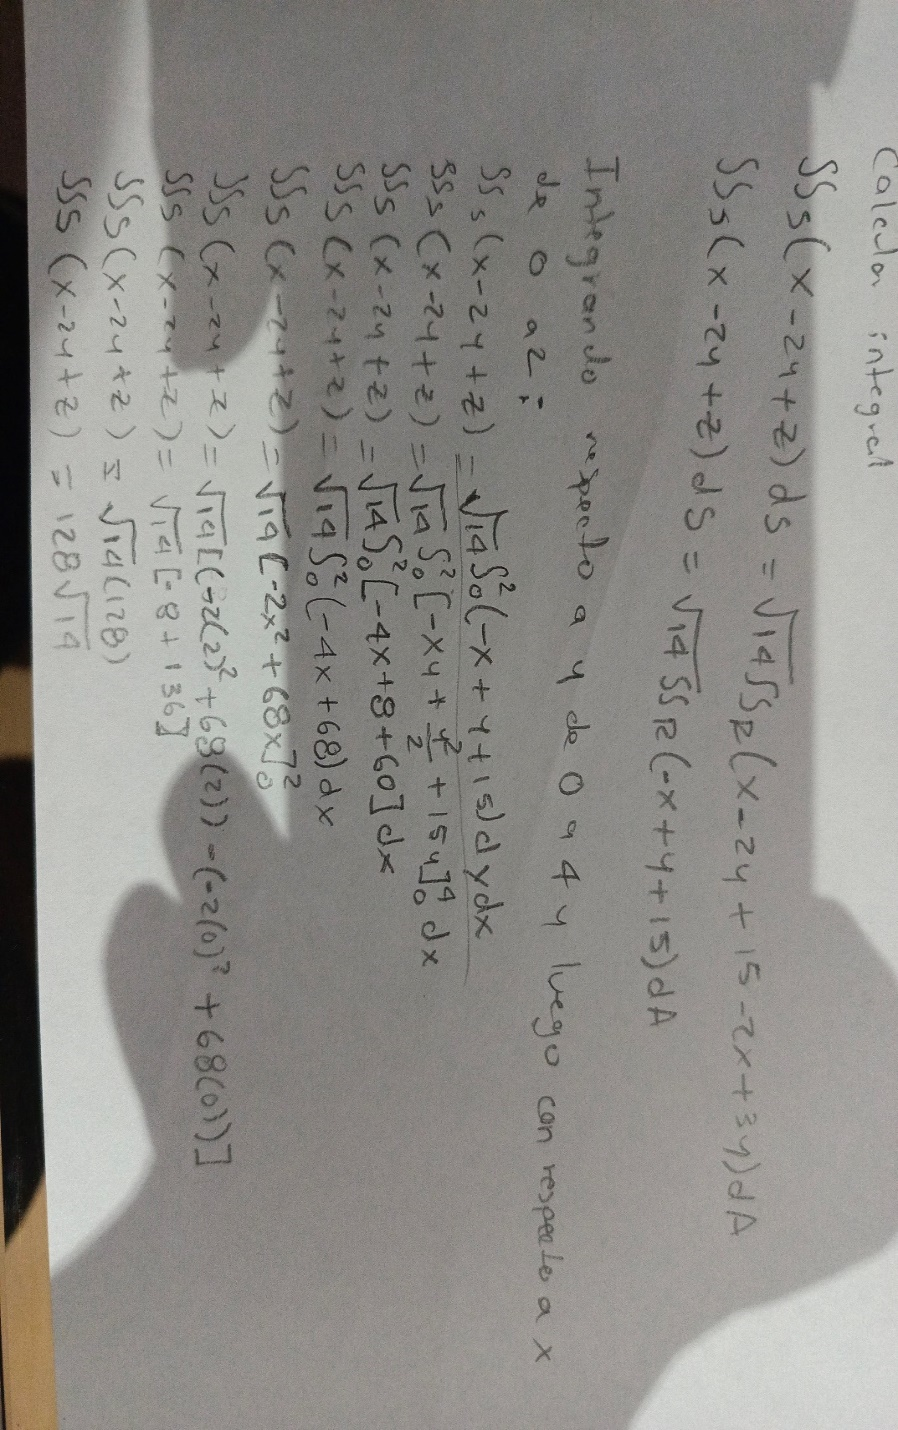 Calcular integral
∫∫s(x-2y+z)ds = √14∫∫R(x-2y+15-2x+3y)dA
∫∫s(x-2y+z)ds = √14∫∫R(-x+y+15)dA
Integrando respecto a y de 0 a 4 y luego con respecto a x
de 0 a 2:
∫∫s(x-2y+z) = √14∫₀²(-x+y+15)dydx
∫∫s(x-2y+z) = √14∫₀²[-xy+y²/2+15y]₀⁴dx
∫∫s(x-2y+z) = √14∫₀²[-4x+8+60]dx
∫∫s(x-2y+z) = √14∫₀²(-4x+68)dx
∫∫s(x-2y+z) = √14[-2x²+68x]₀²
∫∫s(x-2y+z) = √14[(-2(2)²+68(2))-(-2(0)²+68(0))]
∫∫s(x-2y+z) = √14[-8+136]
∫∫s(x-2y+z) = √14(128)
∫∫s(x-2y+z) = 128√14